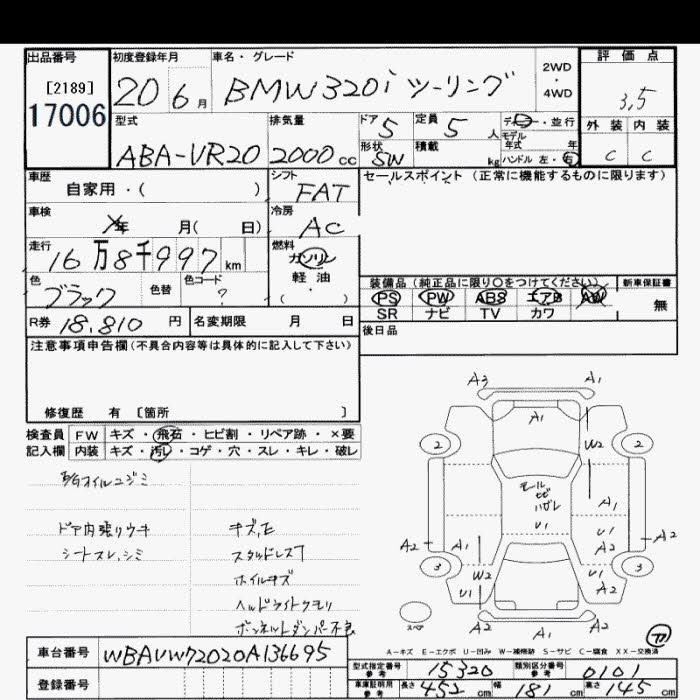 出品番号 初度登録年月 車名・グレード 2WD ・ 4WD 評価点
[2189]
17006 20 6月 BMW320i ツーリング 3,5
型式 排気量 ドア 5 定員 5人 ディーラー・並行 外装 内装
モデル年式 年
ABA-VR20 2000cc 形状 SW 積載 kg ハンドル 左・右 C C
車歴 自家用・( ) シフト FAT セールスポイント (正常に機能するものに限ります)
車検 年 月( 日) 冷房 AC
走行 16万8千997km 燃料 ガソリン
軽油
・( )
色 ブラック 色替 色コード ?
装備品 (純正品に限り○をつけてください) 新車保証書
PS PW ABS エアB AW 無
SR ナビ TV カワ
R券 18,810円 名変期限 月 日 後日品
注意事項申告欄(不具合内容等は具体的に記入して下さい)
修復歴 有 [箇所 ]
検査員 FW キズ・飛石・ヒビ割・リペア跡・×要
記入欄 内装 キズ・汚レ・コゲ・穴・スレ・キレ・破レ
オイルニジミ
ドア内張りウキ キズ,E
シートスレ,シミ スタッドレス
ホイルキズ
ヘッドライトクモリ
ボンネットダンパー不良
A3 A1
A1
2 W2 2
モール
ハガレ
A1
U1
A2 A1 U1 A2 A2
3 W2 U1 3
U1 A2
スペア
A2 A1 A2
A-キズ E-エクボ U-凹み W-補修跡 S-サビ C-腐食 XX-交換済
車台番号 WBAVW72020A136695
登録番号
型式指定番号 参考 15320 類別区分番号 参考 0101
車庫証明用 参考 長さ 452cm 幅 181cm 高さ 145cm